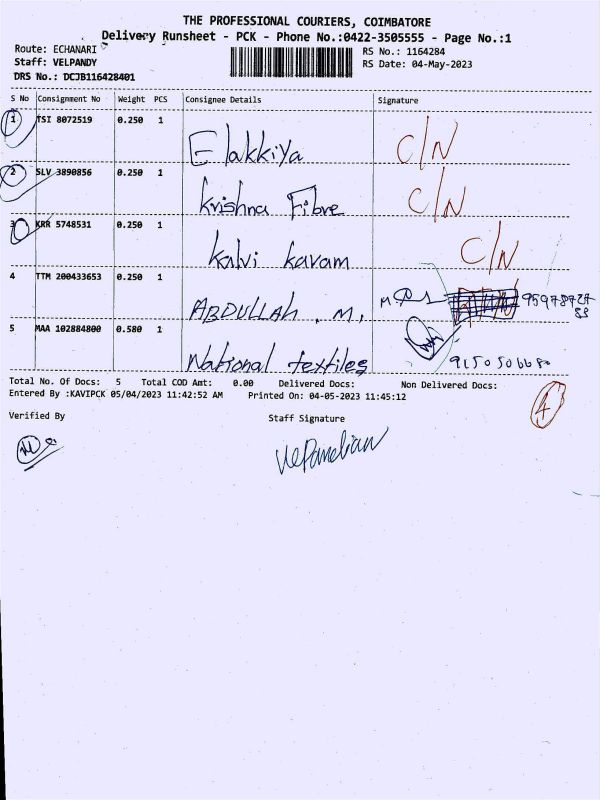 THE PROFESSIONAL COURIERS, COIMBATORE
Delivery Runsheet - PCK - Phone No.:0422-3505555 - Page No.:1
Route: ECHANARI
RS No.: 1164284
Staff: VELPANDY
RS Date: 04-May-2023
DRS No.: DCJB116428401
S No Consignment No Weight PCS Consignee Details Signature
1 TSI 8072519 0.250 1
Elakkiya C/N
2 SLV 3890856 0.250 1
Krishna Fibre C/N
3 KRR 5748531 0.250 1
Kalvi Kavam C/N
4 TTM 200433653 0.250 1
ABDULLAH . M.
5 MAA 102884800 0.580 1
National textiles
Total No. Of Docs: 5 Total COD Amt: 0.00 Delivered Docs: Non Delivered Docs:
Entered By :KAVIPCK 05/04/2023 11:42:52 AM Printed On: 04-05-2023 11:45:12
4
Verified By Staff Signature